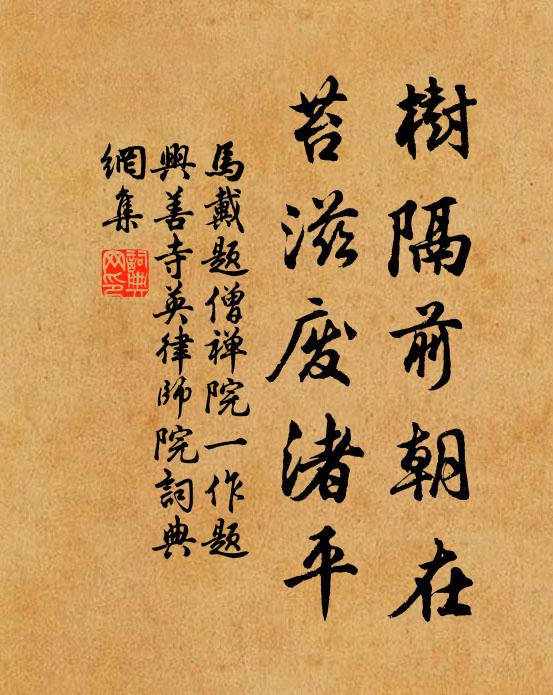 樹隔前朝在
苔滋废渚平
馬戴题僧禅院一作題
興善寺英律師院詞典
網集
詞典
网印